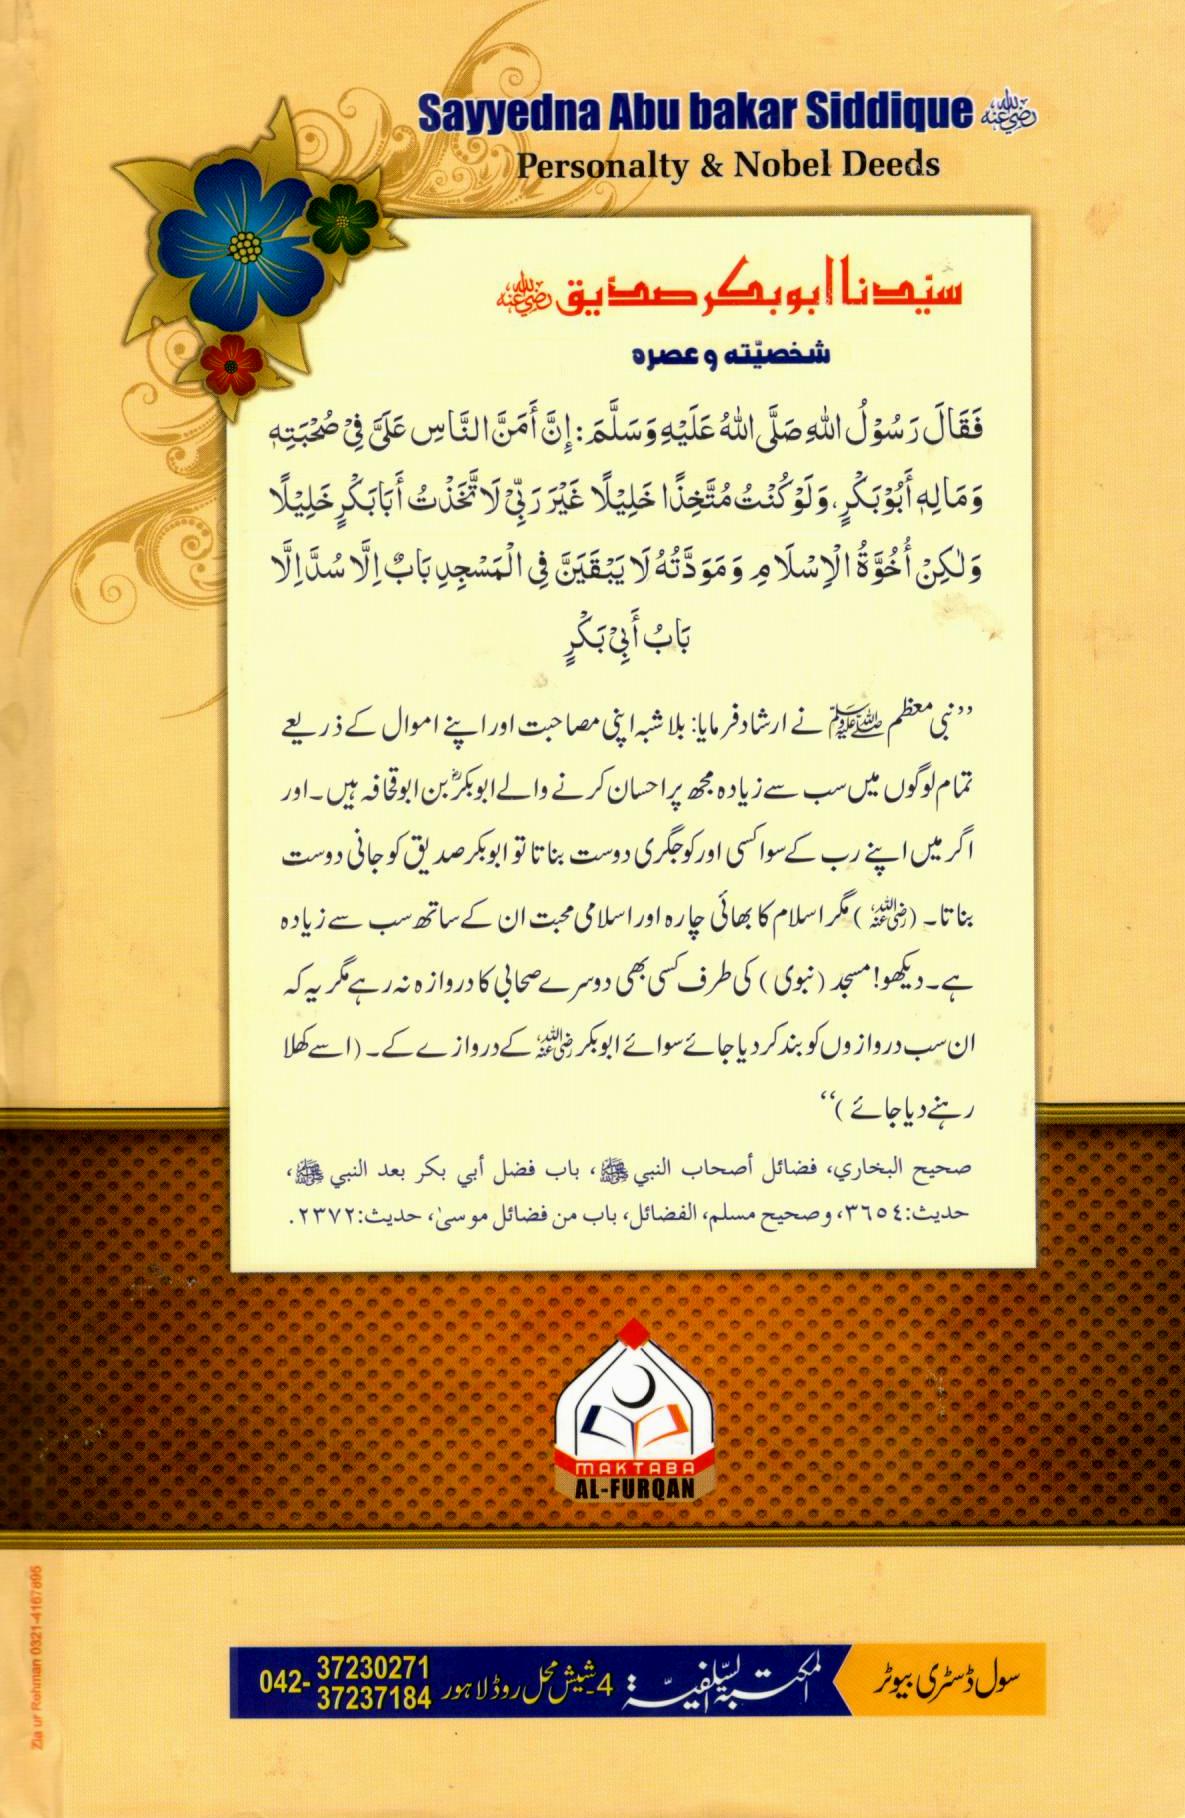 Sayyedna Abu bakar Siddique رضي الله عنه
Personalty & Nobel Deeds
سیّدنا ابوبکر صدیق رضي الله عنه
شخصیّته و عصره
فَقَالَ رَسُوْلُ اللهِ صَلَّى اللهُ عَلَيْهِ وَسَلَّمَ: إِنَّ أَمَنَّ النَّاسِ عَلَيَّ فِيْ صُحْبَتِهٖ
وَمَالِهٖ أَبُوْبَكْرٍ، وَلَوْ كُنْتُ مُتَّخِذًا خَلِيْلًا غَيْرَ رَبِّيْ لَا تَّخَذْتُ أَبَابَكْرٍ خَلِيْلًا
وَلٰكِنْ أُخُوَّةُ الْإِسْلَامِ وَمَوَدَّتُهُ لَا يَبْقَيَنَّ فِي الْمَسْجِدِ بَابٌ اِلَّا سُدَّ اِلَّا
بَابُ أَبِيْ بَكْرٍ
”نبی معظم ﷺ نے ارشاد فرمایا: بلاشبہ اپنی مصاحبت اور اپنے اموال کے ذریعے
تمام لوگوں میں سب سے زیادہ مجھ پر احسان کرنے والے ابوبکرؓ بن ابوقحافہ ہیں۔ اور
اگر میں اپنے رب کے سوا کسی اور کو جگری دوست بناتا تو ابوبکر صدیق کو جانی دوست
بناتا۔ (رضی اللہ عنہ) مگر اسلام کا بھائی چارہ اور اسلامی محبت ان کے ساتھ سب سے زیادہ
ہے۔ دیکھو! مسجد (نبوی) کی طرف کسی بھی دوسرے صحابی کا دروازہ نہ رہے مگر یہ کہ
ان سب دروازوں کو بند کر دیا جائے سوائے ابوبکر رضی اللہ عنہ کے دروازے کے۔ (اسے کھلا
رہنے دیا جائے)“
صحيح البخاري، فضائل أصحاب النبي ﷺ، باب فضل أبي بكر بعد النبي ﷺ،
حديث: ٣٦٥٤، وصحيح مسلم، الفضائل، باب من فضائل موسىٰ، حديث: ٢٣٧٢.
MAKTABA
AL-FURQAN
سول ڈسٹری بیوٹر
المکتبۃ السّلفیّۃ
4۔شیش محل روڈ لاہور
042-37230271
37237184
Zia ur Rehman 0321-4167895